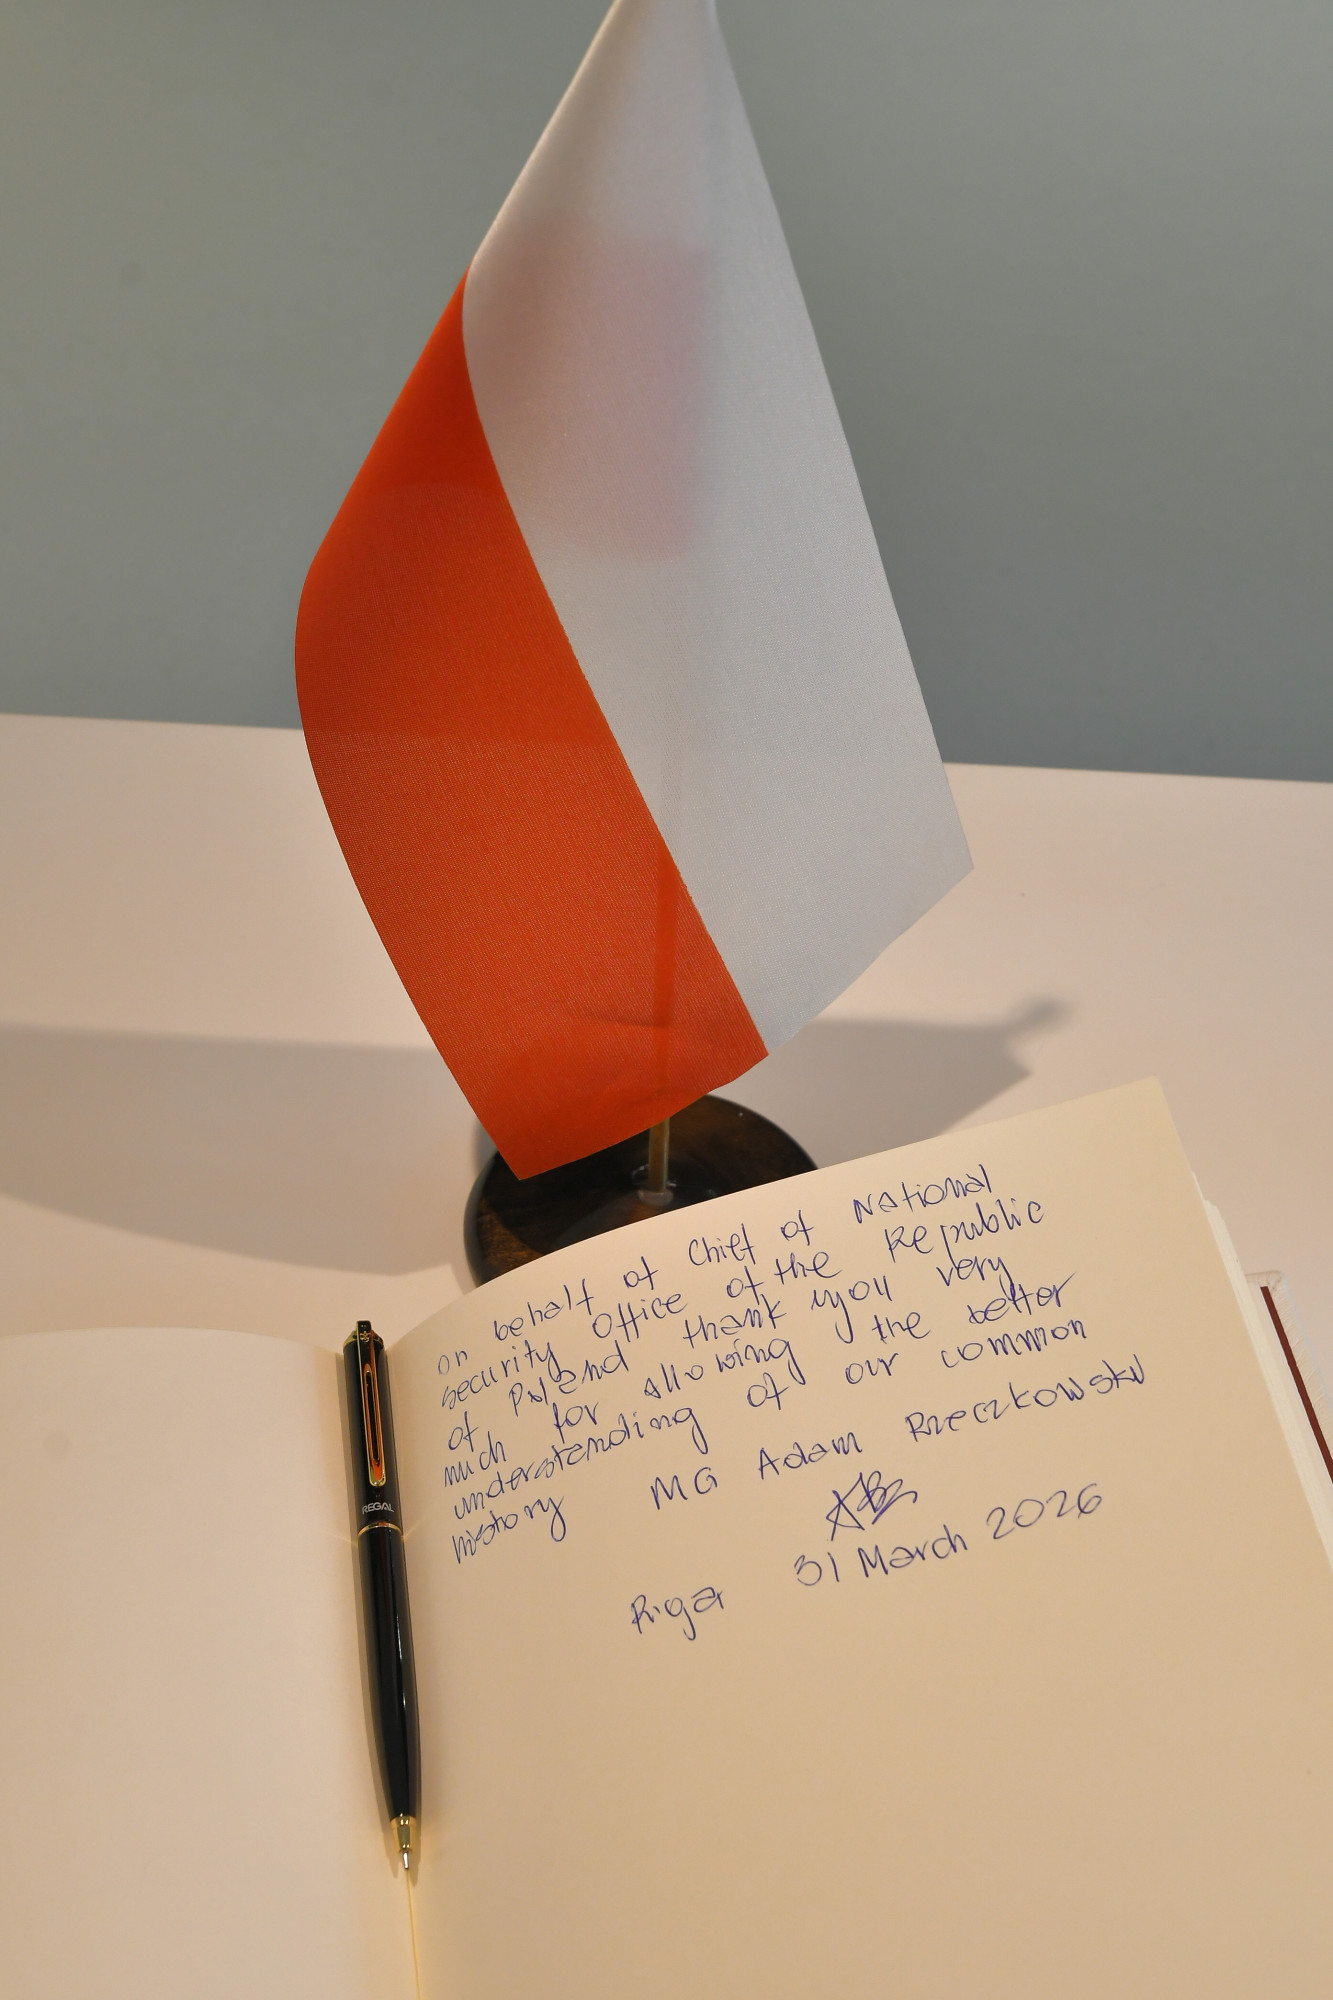 on behalf of Chief of National
security Office of the Republic
of Poland thank you very
much for allowing the better
understanding of our common
history MG Adam Rzeczkowski
Riga 31 March 2026
REGAL